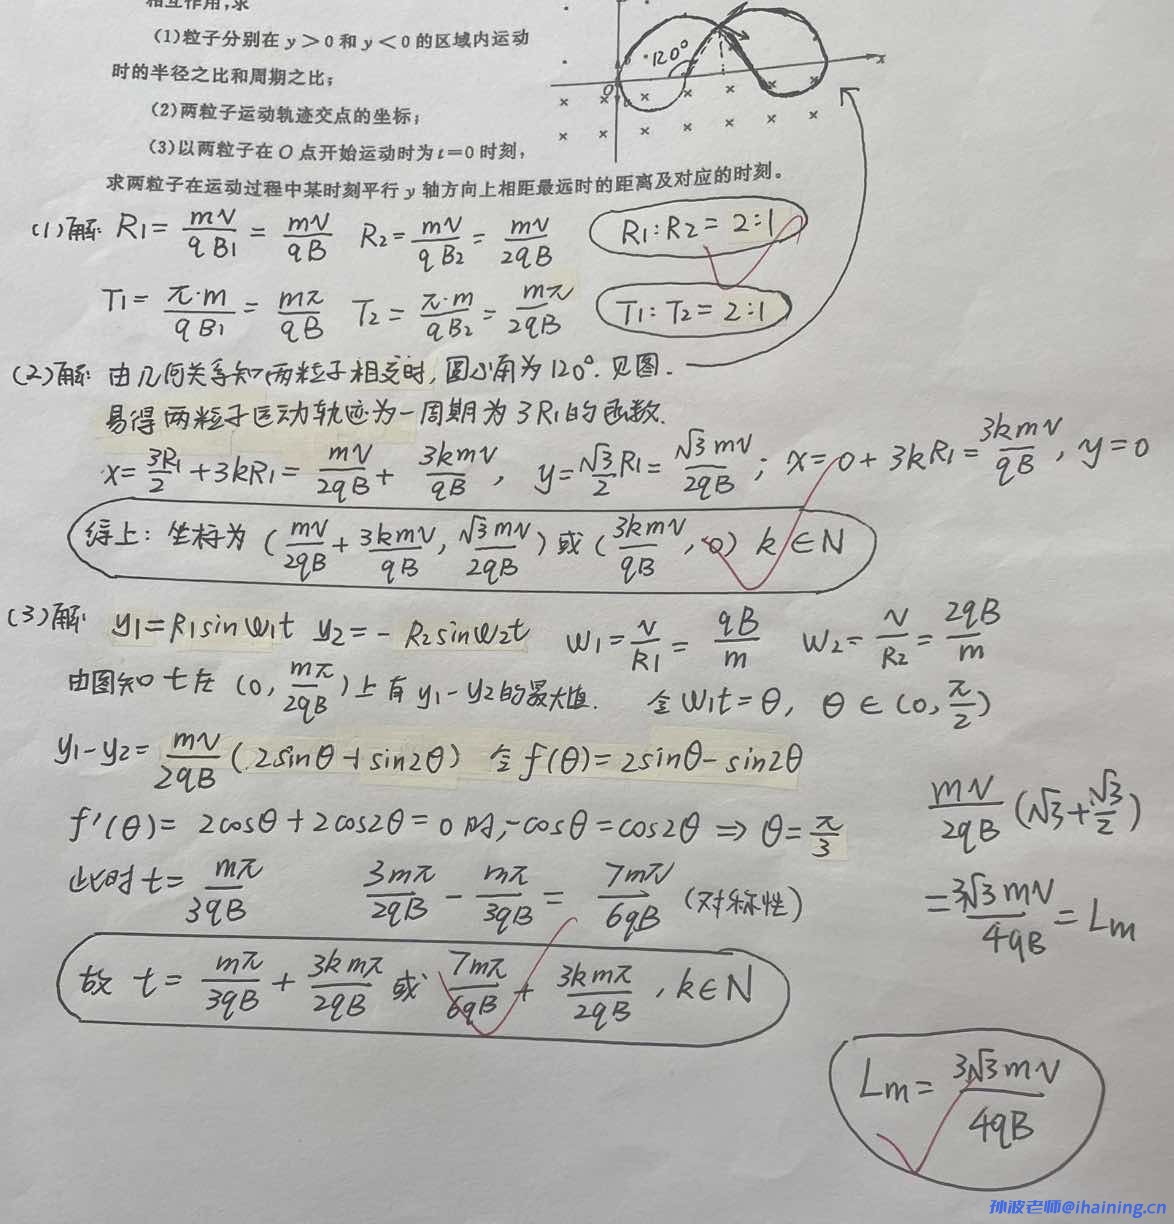 相互作用,求
(1)粒子分别在 y>0 和 y<0 的区域内运动
时的半径之比和周期之比;
(2)两粒子运动轨迹交点的坐标;
(3)以两粒子在 O 点开始运动时为 t=0 时刻,
求两粒子在运动过程中某时刻平行 y 轴方向上相距最远时的距离及对应的时刻。
120° O x
(1)解: R1 = mv/qB1 = mv/qB R2 = mv/qB2 = mv/2qB R1:R2 = 2:1
T1 = π·m/qB1 = mπ/qB T2 = π·m/qB2 = mπ/2qB T1:T2 = 2:1
(2)解: 由几何关系知两粒子相交时,圆心角为120°.见图.
易得两粒子运动轨迹为一周期为3R1的函数.
x = 3R1/2 + 3kR1 = mv/2qB + 3kmv/qB, y = √3/2 R1 = √3mv/2qB; x = 0 + 3kR1 = 3kmv/qB, y = 0
综上: 坐标为 (mv/2qB + 3kmv/qB, √3mv/2qB) 或 (3kmv/qB, 0) k∈N
(3)解: y1 = R1sinω1t y2 = - R2sinω2t ω1 = v/R1 = qB/m ω2 = v/R2 = 2qB/m
由图知 t 在 (0, mπ/2qB) 上有 y1-y2 的最大值. 令 ω1t = θ, θ∈(0, π/2)
y1-y2 = mv/2qB (2sinθ + sin2θ) 令 f(θ) = 2sinθ - sin2θ
f'(θ) = 2cosθ + 2cos2θ = 0 时, -cosθ = cos2θ ⇒ θ = π/3
mv/2qB (√3 + √3/2)
此时 t = mπ/3qB 3mπ/2qB - mπ/3qB = 7mπ/6qB (对称性)
= 3√3mv/4qB = Lm
故 t = mπ/3qB + 3kmπ/2qB 或 7mπ/6qB + 3kmπ/2qB , k∈N
Lm = 3√3mv/4qB
孙波老师@ihaining.cn